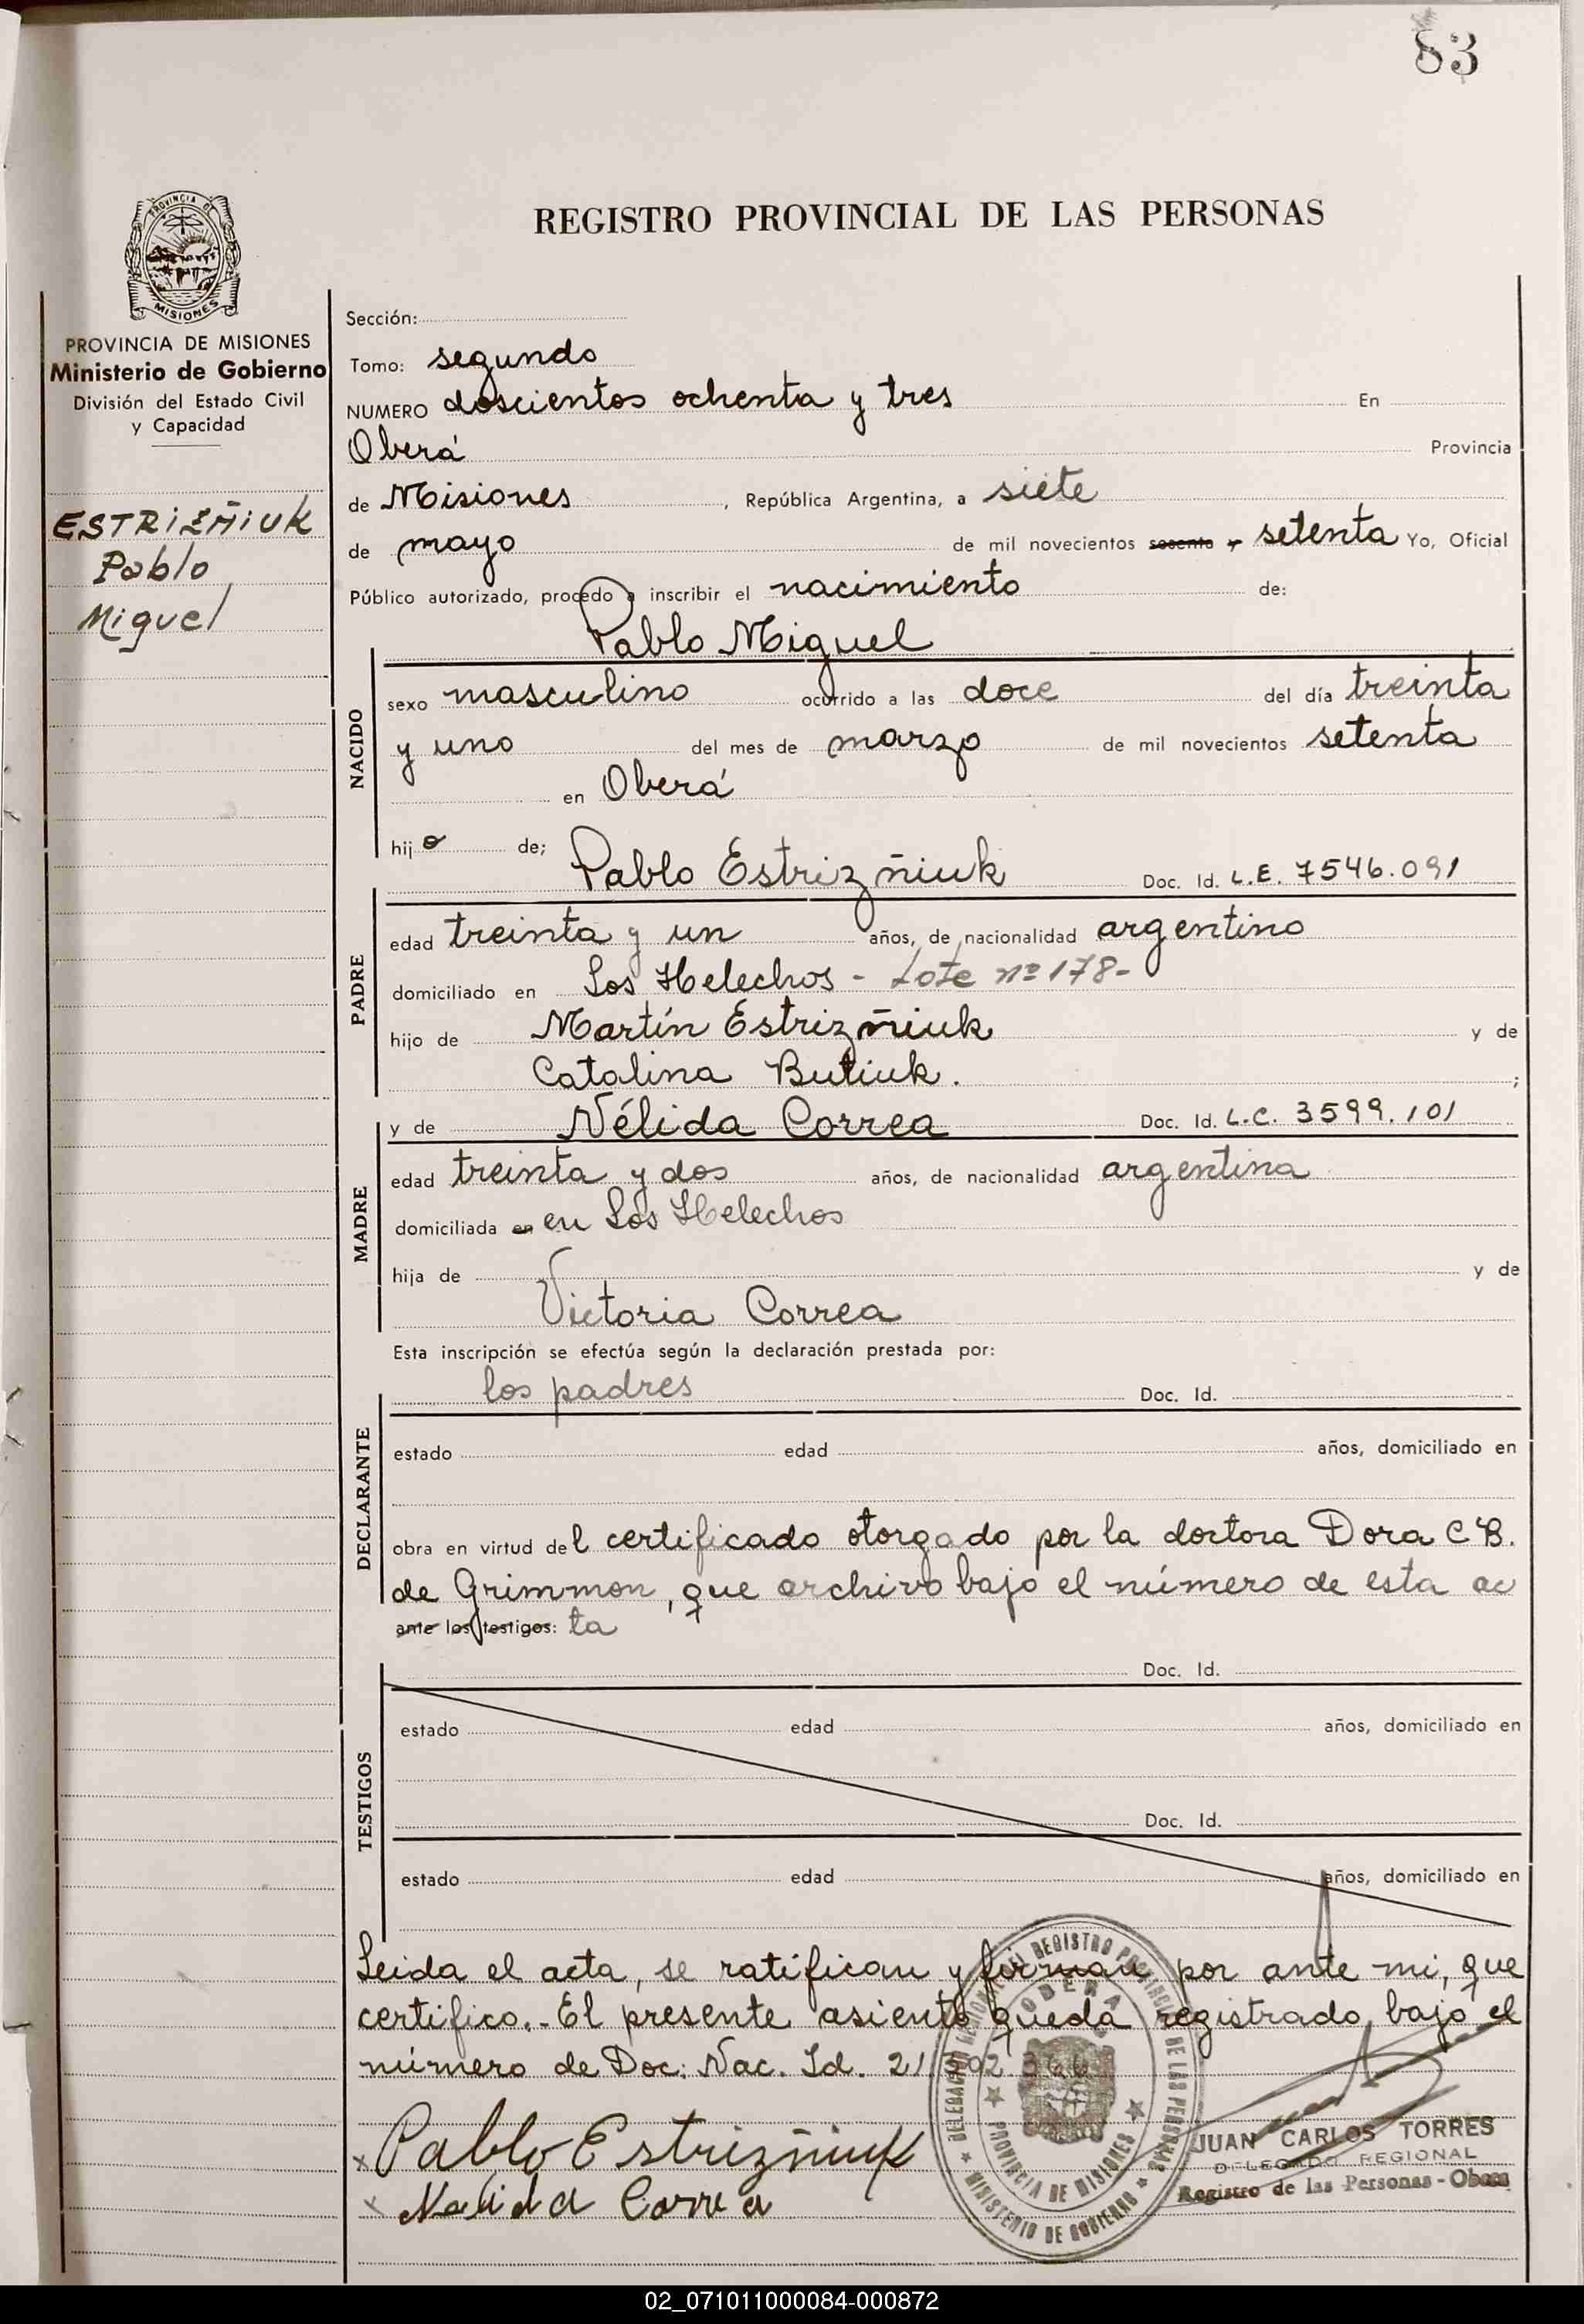 83
PROVINCIA DE
MISIONES
REGISTRO PROVINCIAL DE LAS PERSONAS
PROVINCIA DE MISIONES
Ministerio de Gobierno
División del Estado Civil
y Capacidad
ESTRIZÑIUK
Pablo
Miguel
Sección:
Tomo: segundo
NUMERO doscientos ochenta y tres En
Oberá Provincia
de Misiones, República Argentina, a siete
de mayo de mil novecientos sesenta y setenta Yo, Oficial
Público autorizado, procedo a inscribir el nacimiento de:
Pablo Miguel
NACIDO
sexo masculino ocurrido a las doce del día treinta
y uno del mes de marzo de mil novecientos setenta
en Oberá
hijo de; Pablo Estrizñiuk Doc. Id. L.E. 7546.091
PADRE
edad treinta y un años, de nacionalidad argentino
domiciliado en Los Helechos - Lote nº 178-
hijo de Martín Estrizñiuk y de
Catalina Butiuk. ;
y de Nélida Correa Doc. Id. L.C. 3599.101
MADRE
edad treinta y dos años, de nacionalidad argentina
domiciliada en en Los Helechos
hija de y de
Victoria Correa
Esta inscripción se efectúa según la declaración prestada por:
los padres Doc. Id.
DECLARANTE
estado edad años, domiciliado en
obra en virtud del certificado otorgado por la doctora Dora C B.
de Grimmon, que archivo bajo el número de esta ac
ante los testigos: ta
Doc. Id.
TESTIGOS
estado edad años, domiciliado en
Doc. Id.
estado edad años, domiciliado en
Leida el acta, se ratifican y firman por ante mi, que
certifico.- El presente asiento queda registrado bajo el
número de Doc: Nac. Id. 21
x Pablo Estrizñiuk
x Nelida Correa
DELEGACION REGIONAL DEL REGISTRO PROVINCIAL DE LAS PERSONAS
OBERA
PROVINCIA DE MISIONES
MINISTERIO DE GOBIERNO
JUAN CARLOS TORRES
DELEGADO REGIONAL
Registro de las Personas - Obera
02_071011000084-000872